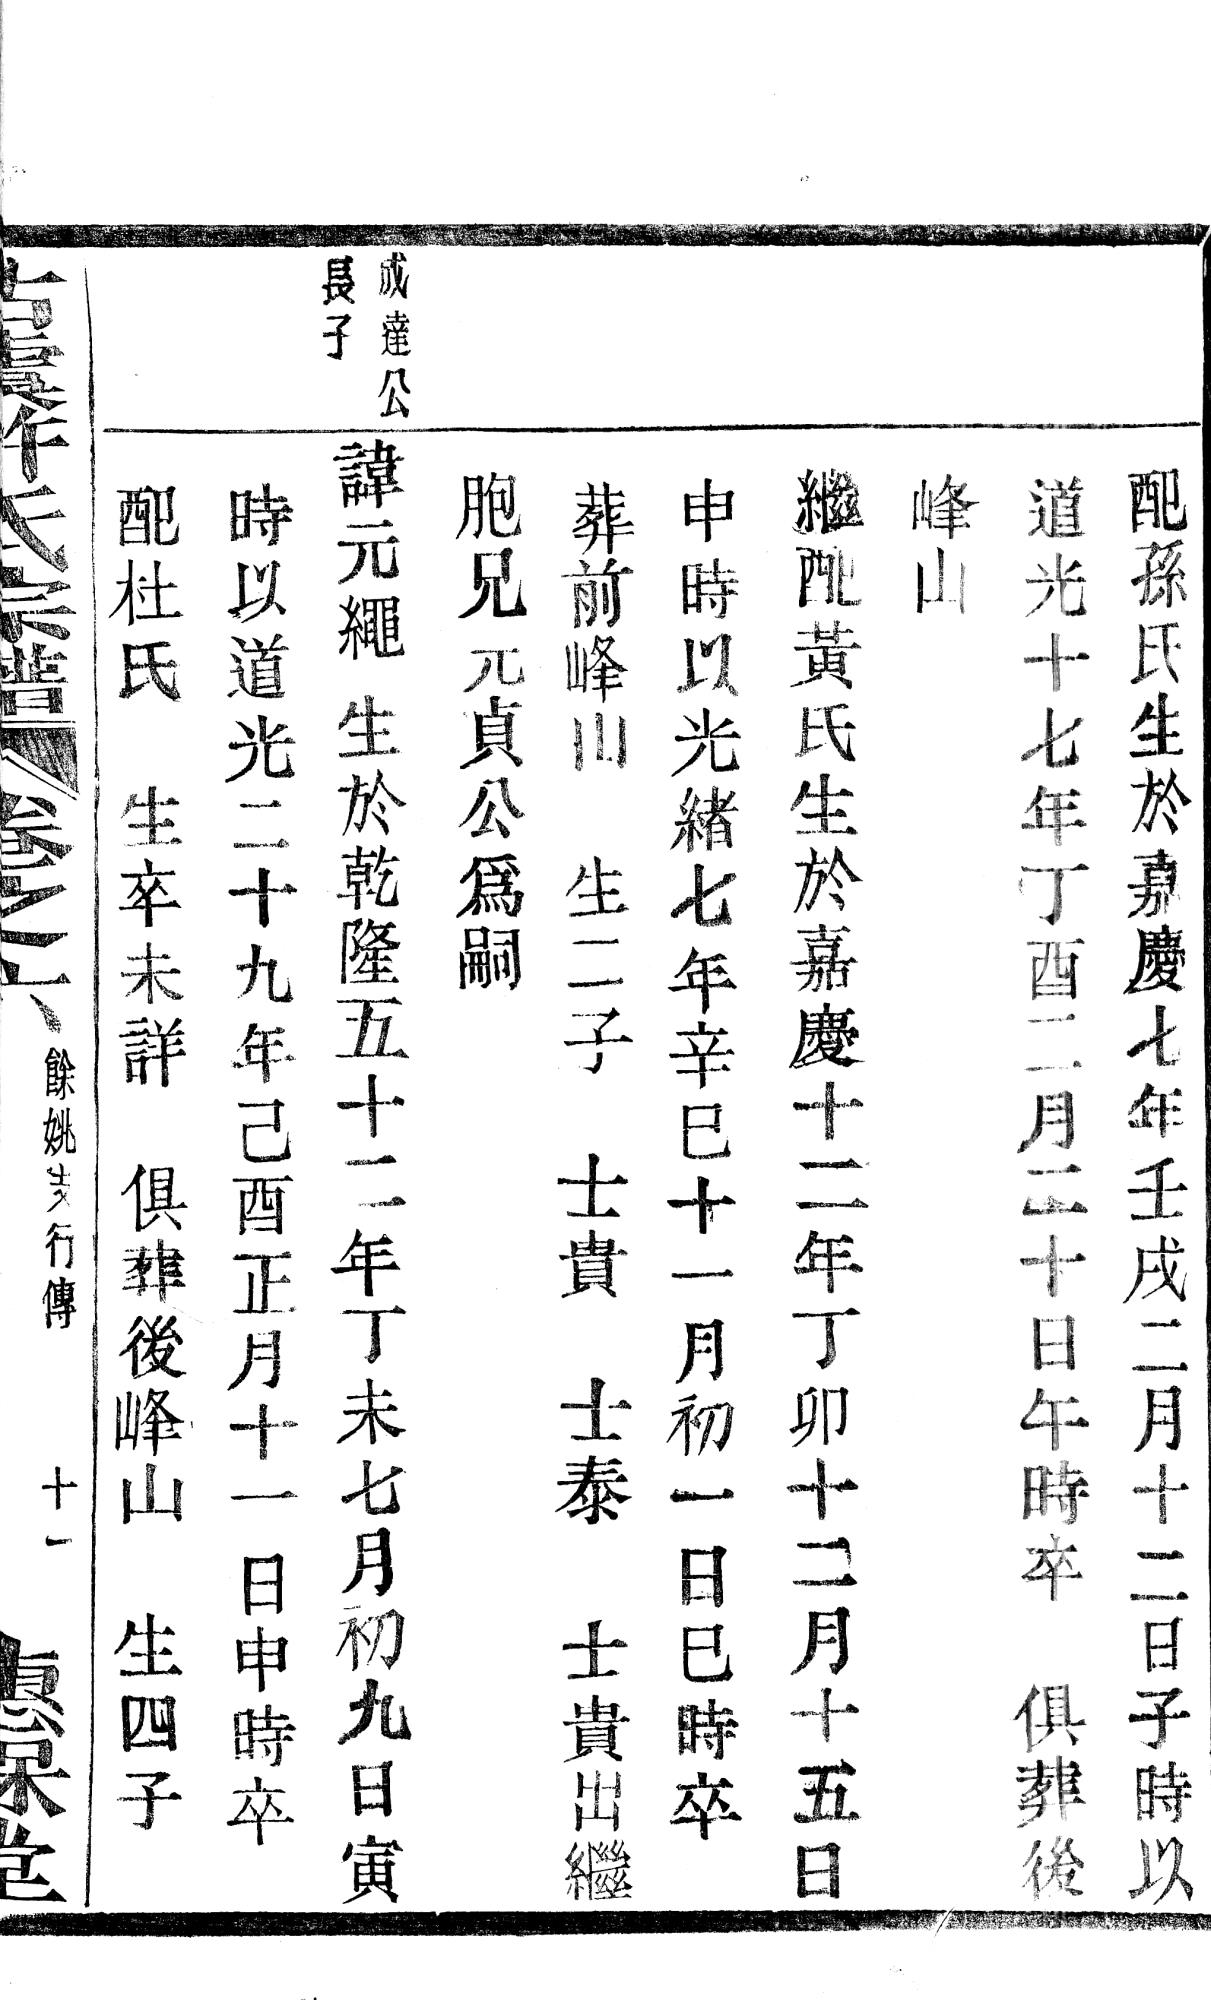 配孫氏生於嘉慶七年壬戌二月十二日子時以
道光十七年丁酉二月二十日午時卒　俱葬後
峰山
繼配黃氏生於嘉慶十二年丁卯十二月十五日
申時以光緒七年辛巳十一月初一日巳時卒
葬前峰山　生二子　士貴　士泰　士貴出繼
胞兄元貞公爲嗣
成達公
長子
諱元繩　生於乾隆五十二年丁未七月初九日寅
時以道光二十九年己酉正月十一日申時卒
配杜氏　生卒未詳　俱葬後峰山　生四子
古虞許氏宗譜　卷之六　餘姚　行傳　十一